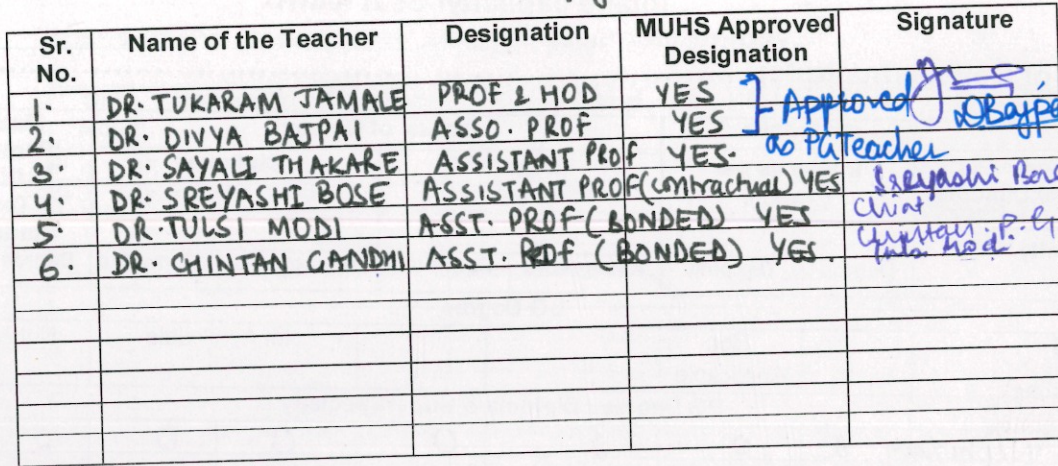 Sr. No. Name of the Teacher Designation MUHS Approved Designation Signature
1. DR. TUKARAM JAMALE PROF & HOD YES
2. DR. DIVYA BAJPAI ASSO. PROF YES
} Approved as PG Teacher
DBajpa
3. DR. SAYALI THAKARE ASSISTANT PROF YES.
4. DR. SREYASHI BOSE ASSISTANT PROF (contractual) YES Sreyashi Bose
5. DR. TULSI MODI ASST. PROF (BONDED) YES Chint
6. DR. CHINTAN GANDHI ASST. PROF (BONDED) YES. Chintan. P. G